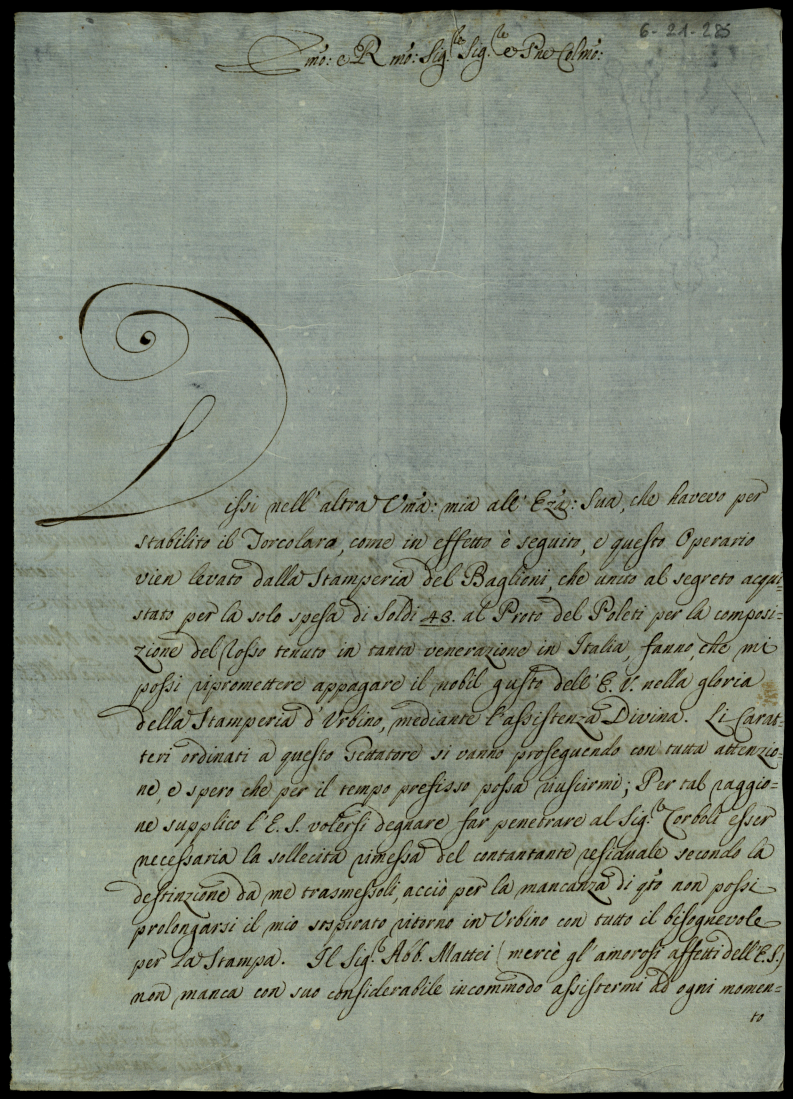 6-21-285
Emo: e Rmo: Sig.re Sig.re e Pne Colmo:
Dissi nell' altra Uma: mia all' Eza: Sua, che havevo per
stabilito il Torcolara, come in effetto è seguito, e questo Operario
vien levato dalla Stamperia del Baglioni, che unito al segreto acqui=
stato per la solo spesa di Soldi 48. al Proto del Poleti per la composi=
zione del Rosso tenuto in tanta venerazione in Italia, fanno, che mi
possi ripromettere appagare il nobil gusto dell' E. V. nella gloria
della Stamperia d' Urbino, mediante l'assistenza Divina. Li Carat=
teri ordinati a questo Gettatore si vanno proseguendo con tutta attenzio=
ne, e spero che per il tempo prefisso possa riuscirmi; Per tal raggio=
ne supplico l' E. S. volersi degnare far penetrare al Sig.re Corboli esser
necessaria la sollecita rimessa del contantante residuale secondo la
destinzione da me trasmessoli, acciò per la mancanza di qto non possi
prolongarsi il mio sospirato ritorno in Urbino con tutto il bisognevole
per la Stampa. Il Sig.re Abb. Mattei (mercè gl' amorosi affetti dell' E. S.)
non manca con suo considerabile incommodo assistermi ad ogni momen=
to